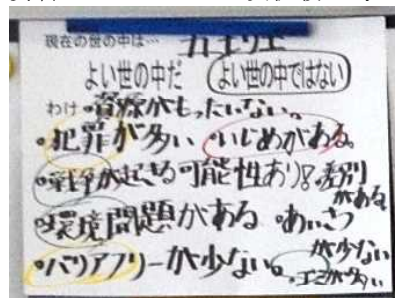 現在の世の中は…
よい世の中だ よい世の中ではない
わけ・資源がもったいない。
・犯罪が多い ・いじめがある。
・戦争が起きる可能性あり?・差別がある
・環境問題がある ・あいさつが少ない
・バリアフリーが少ない。 ・ゴミが多い